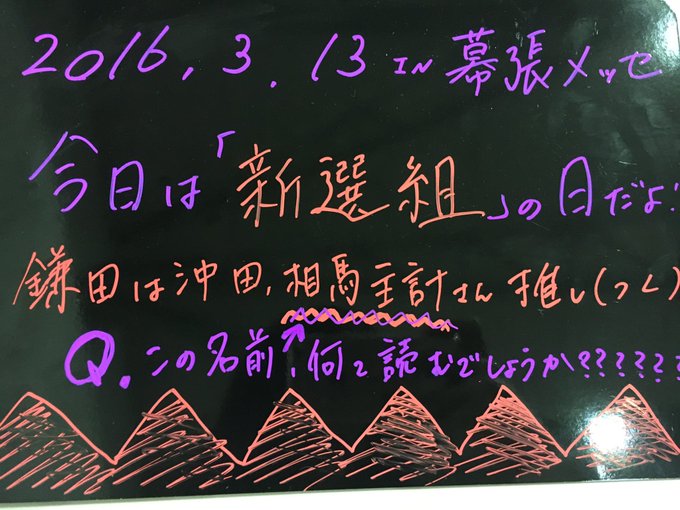 2016.3.13 IN 幕張メッセ
今日は「新選組」の日だよ!
鎌田は沖田、相馬主計さん推し(つく)
Q.この名前、何て読むでしょうか??????